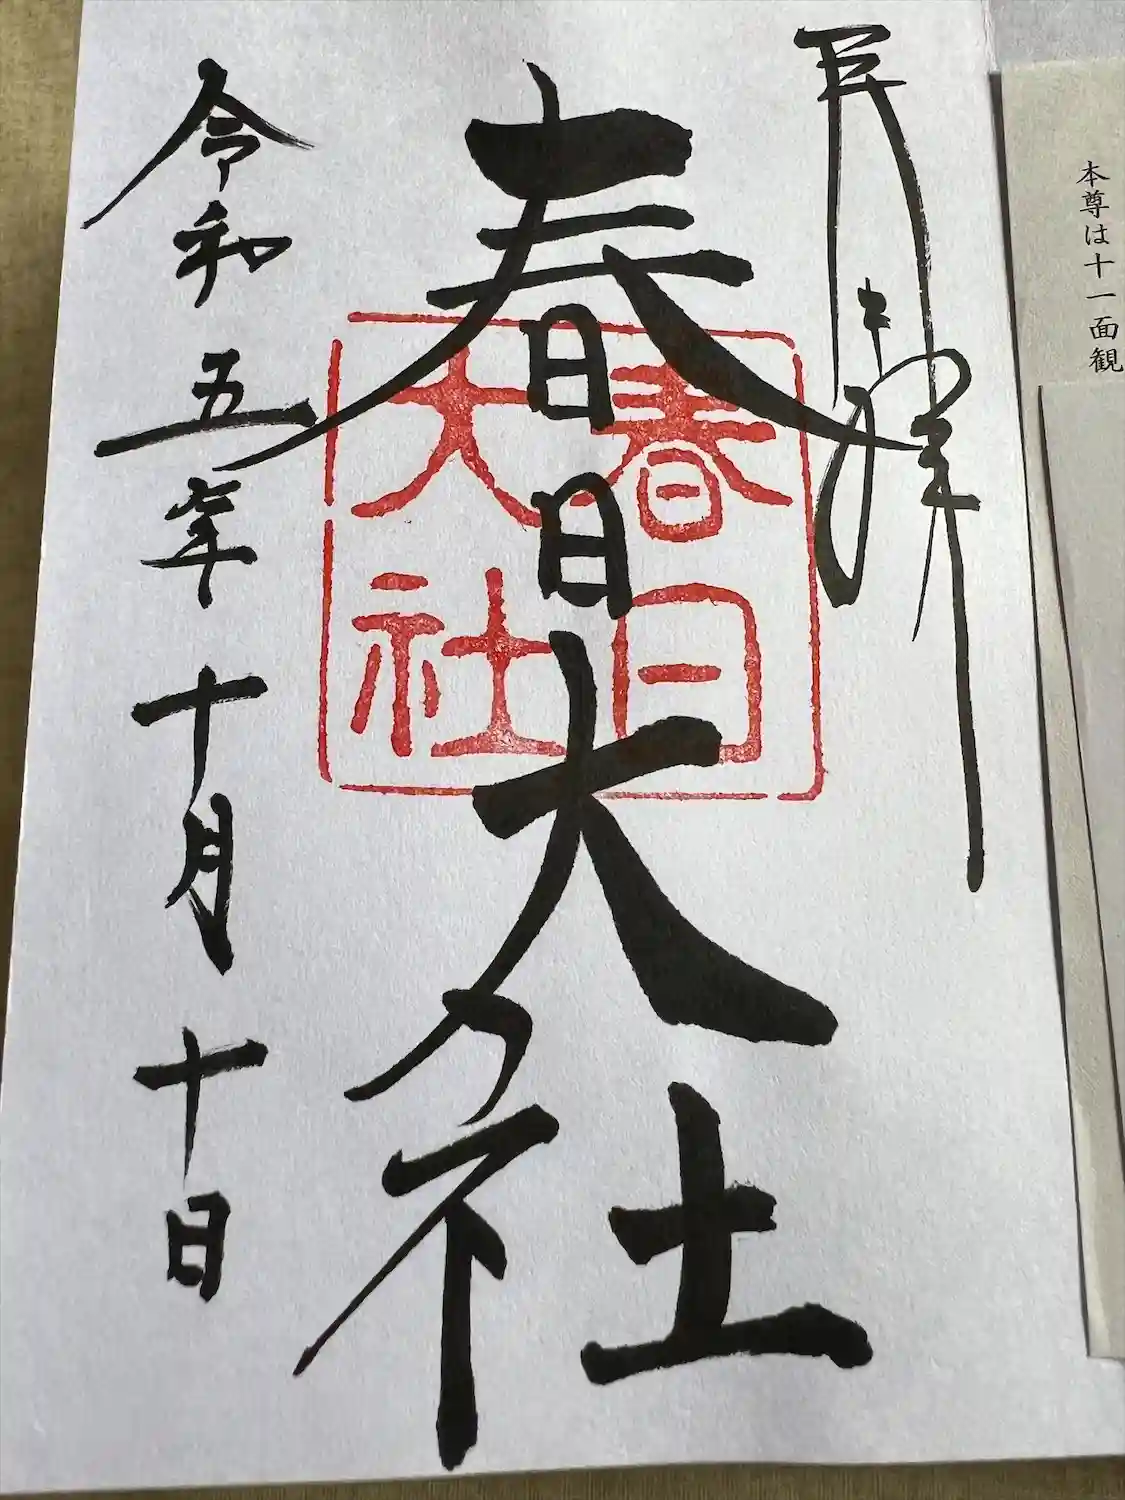 本尊は十一面観
奉拝
春日大社
春日
大社
令和五年十月十日